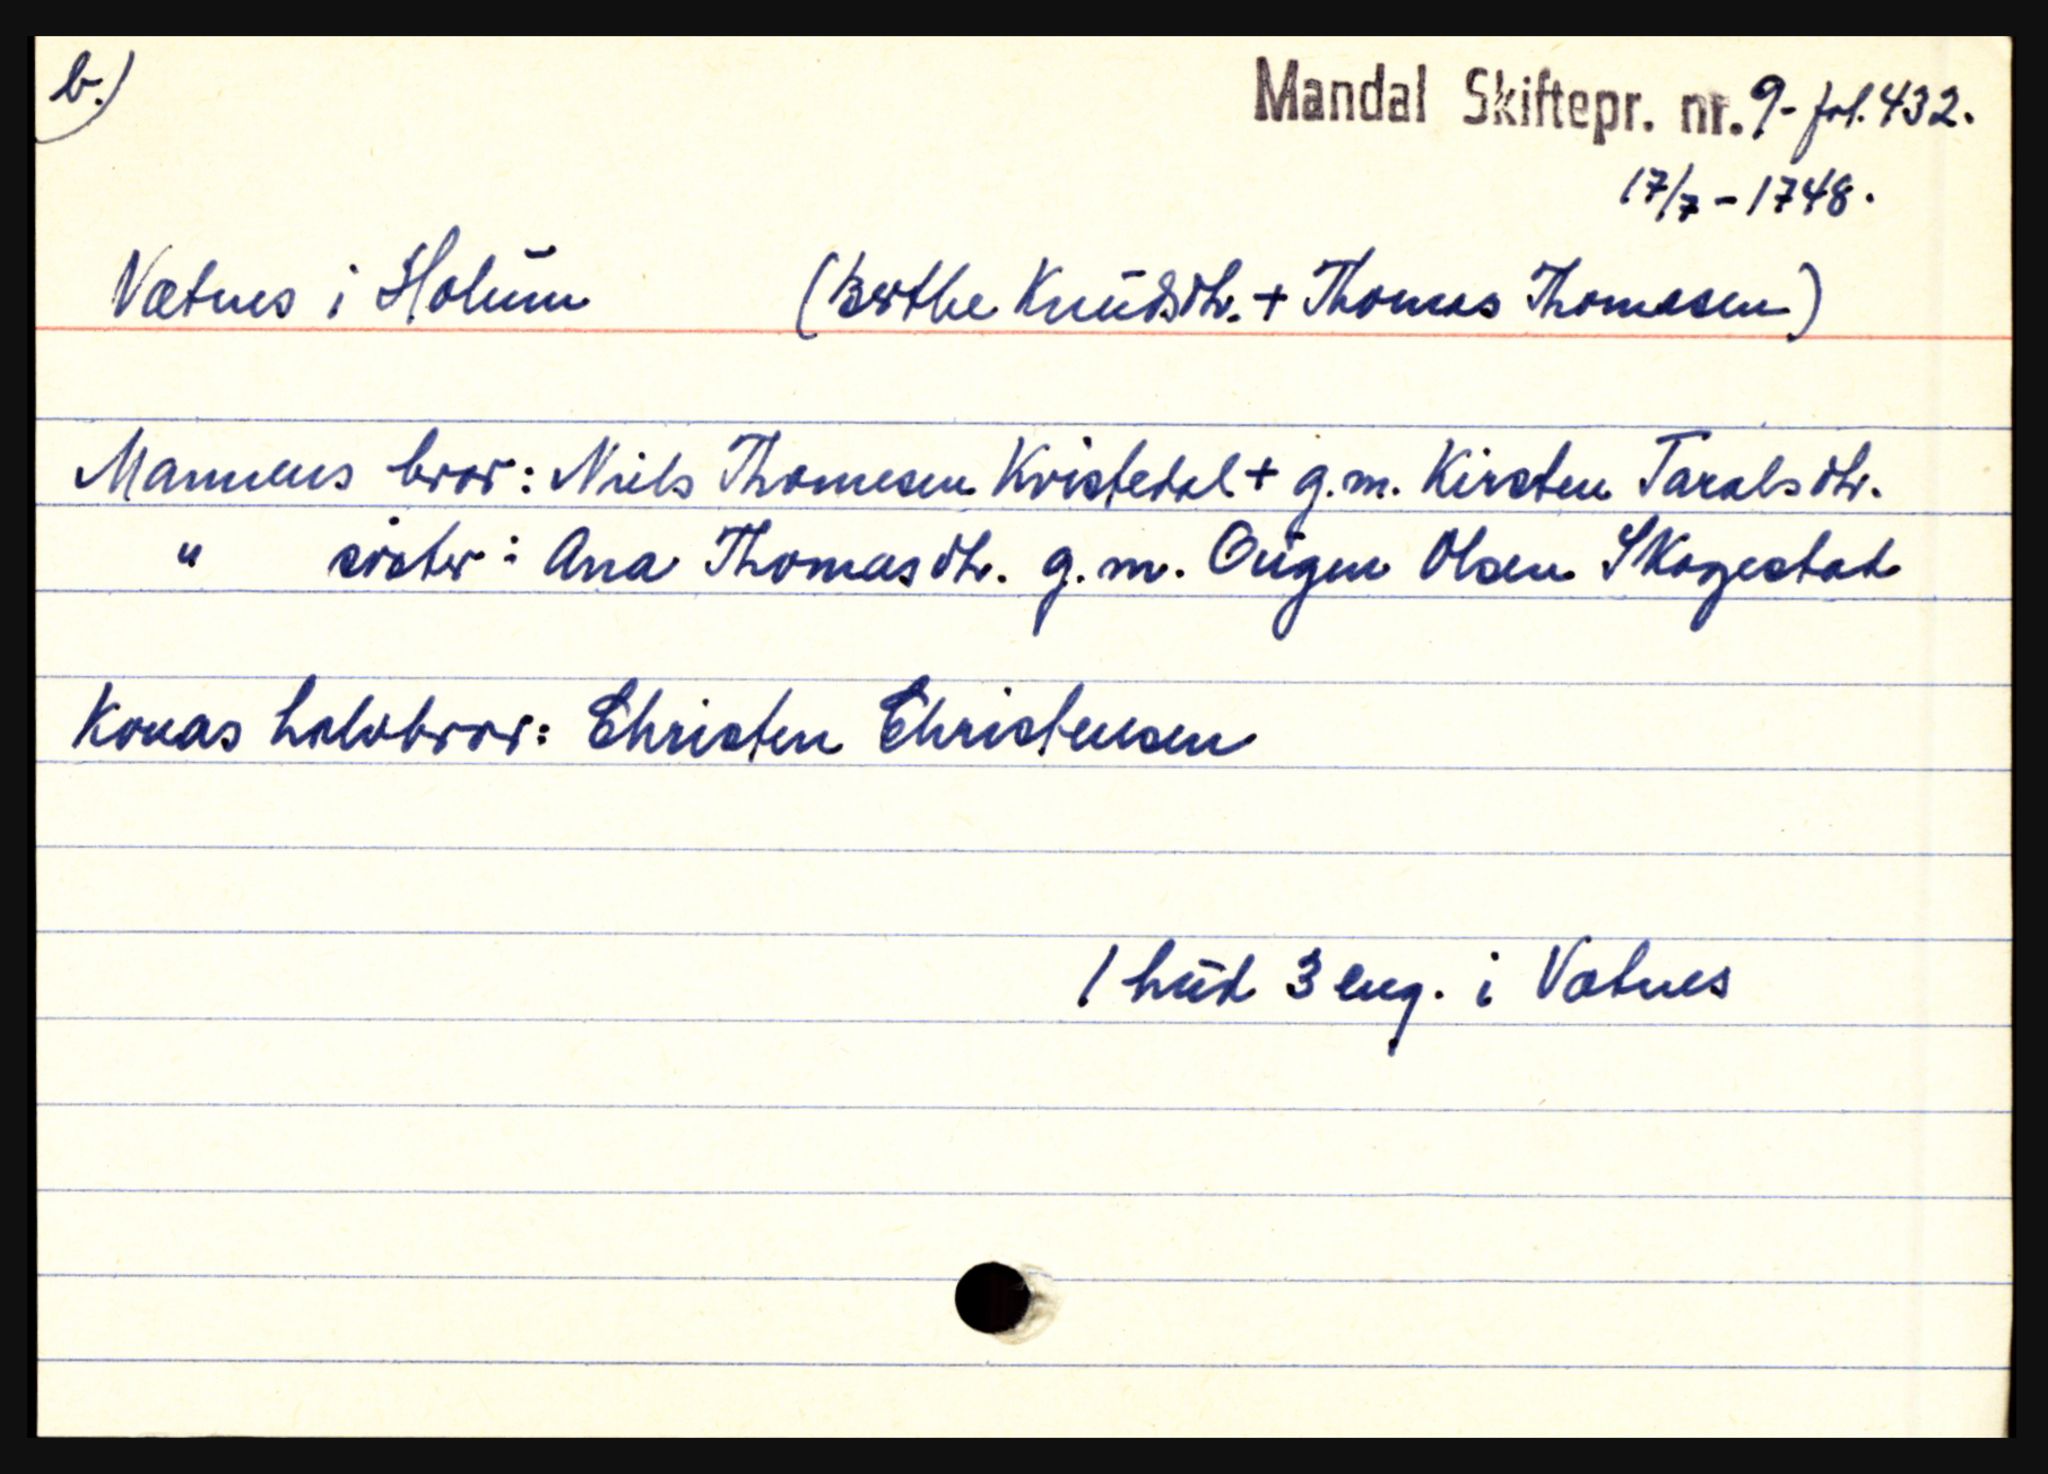 b.)
Mandal Skiftepr. nr. 9- fol. 432.
17/7 - 1748.
Vatnes i Holum (Berthe Knudsdtr. + Thomas Thomasen)
Mannens bror: Niels Thomesen Kvistedal + g.m. Kirsten Taralsdtr.
" sister: Ana Thomasdtr. g.m. Ougen Olsen Skogestad
Konas halvbror: Christen Christensen
1 hud 3 eng. i Vatnes